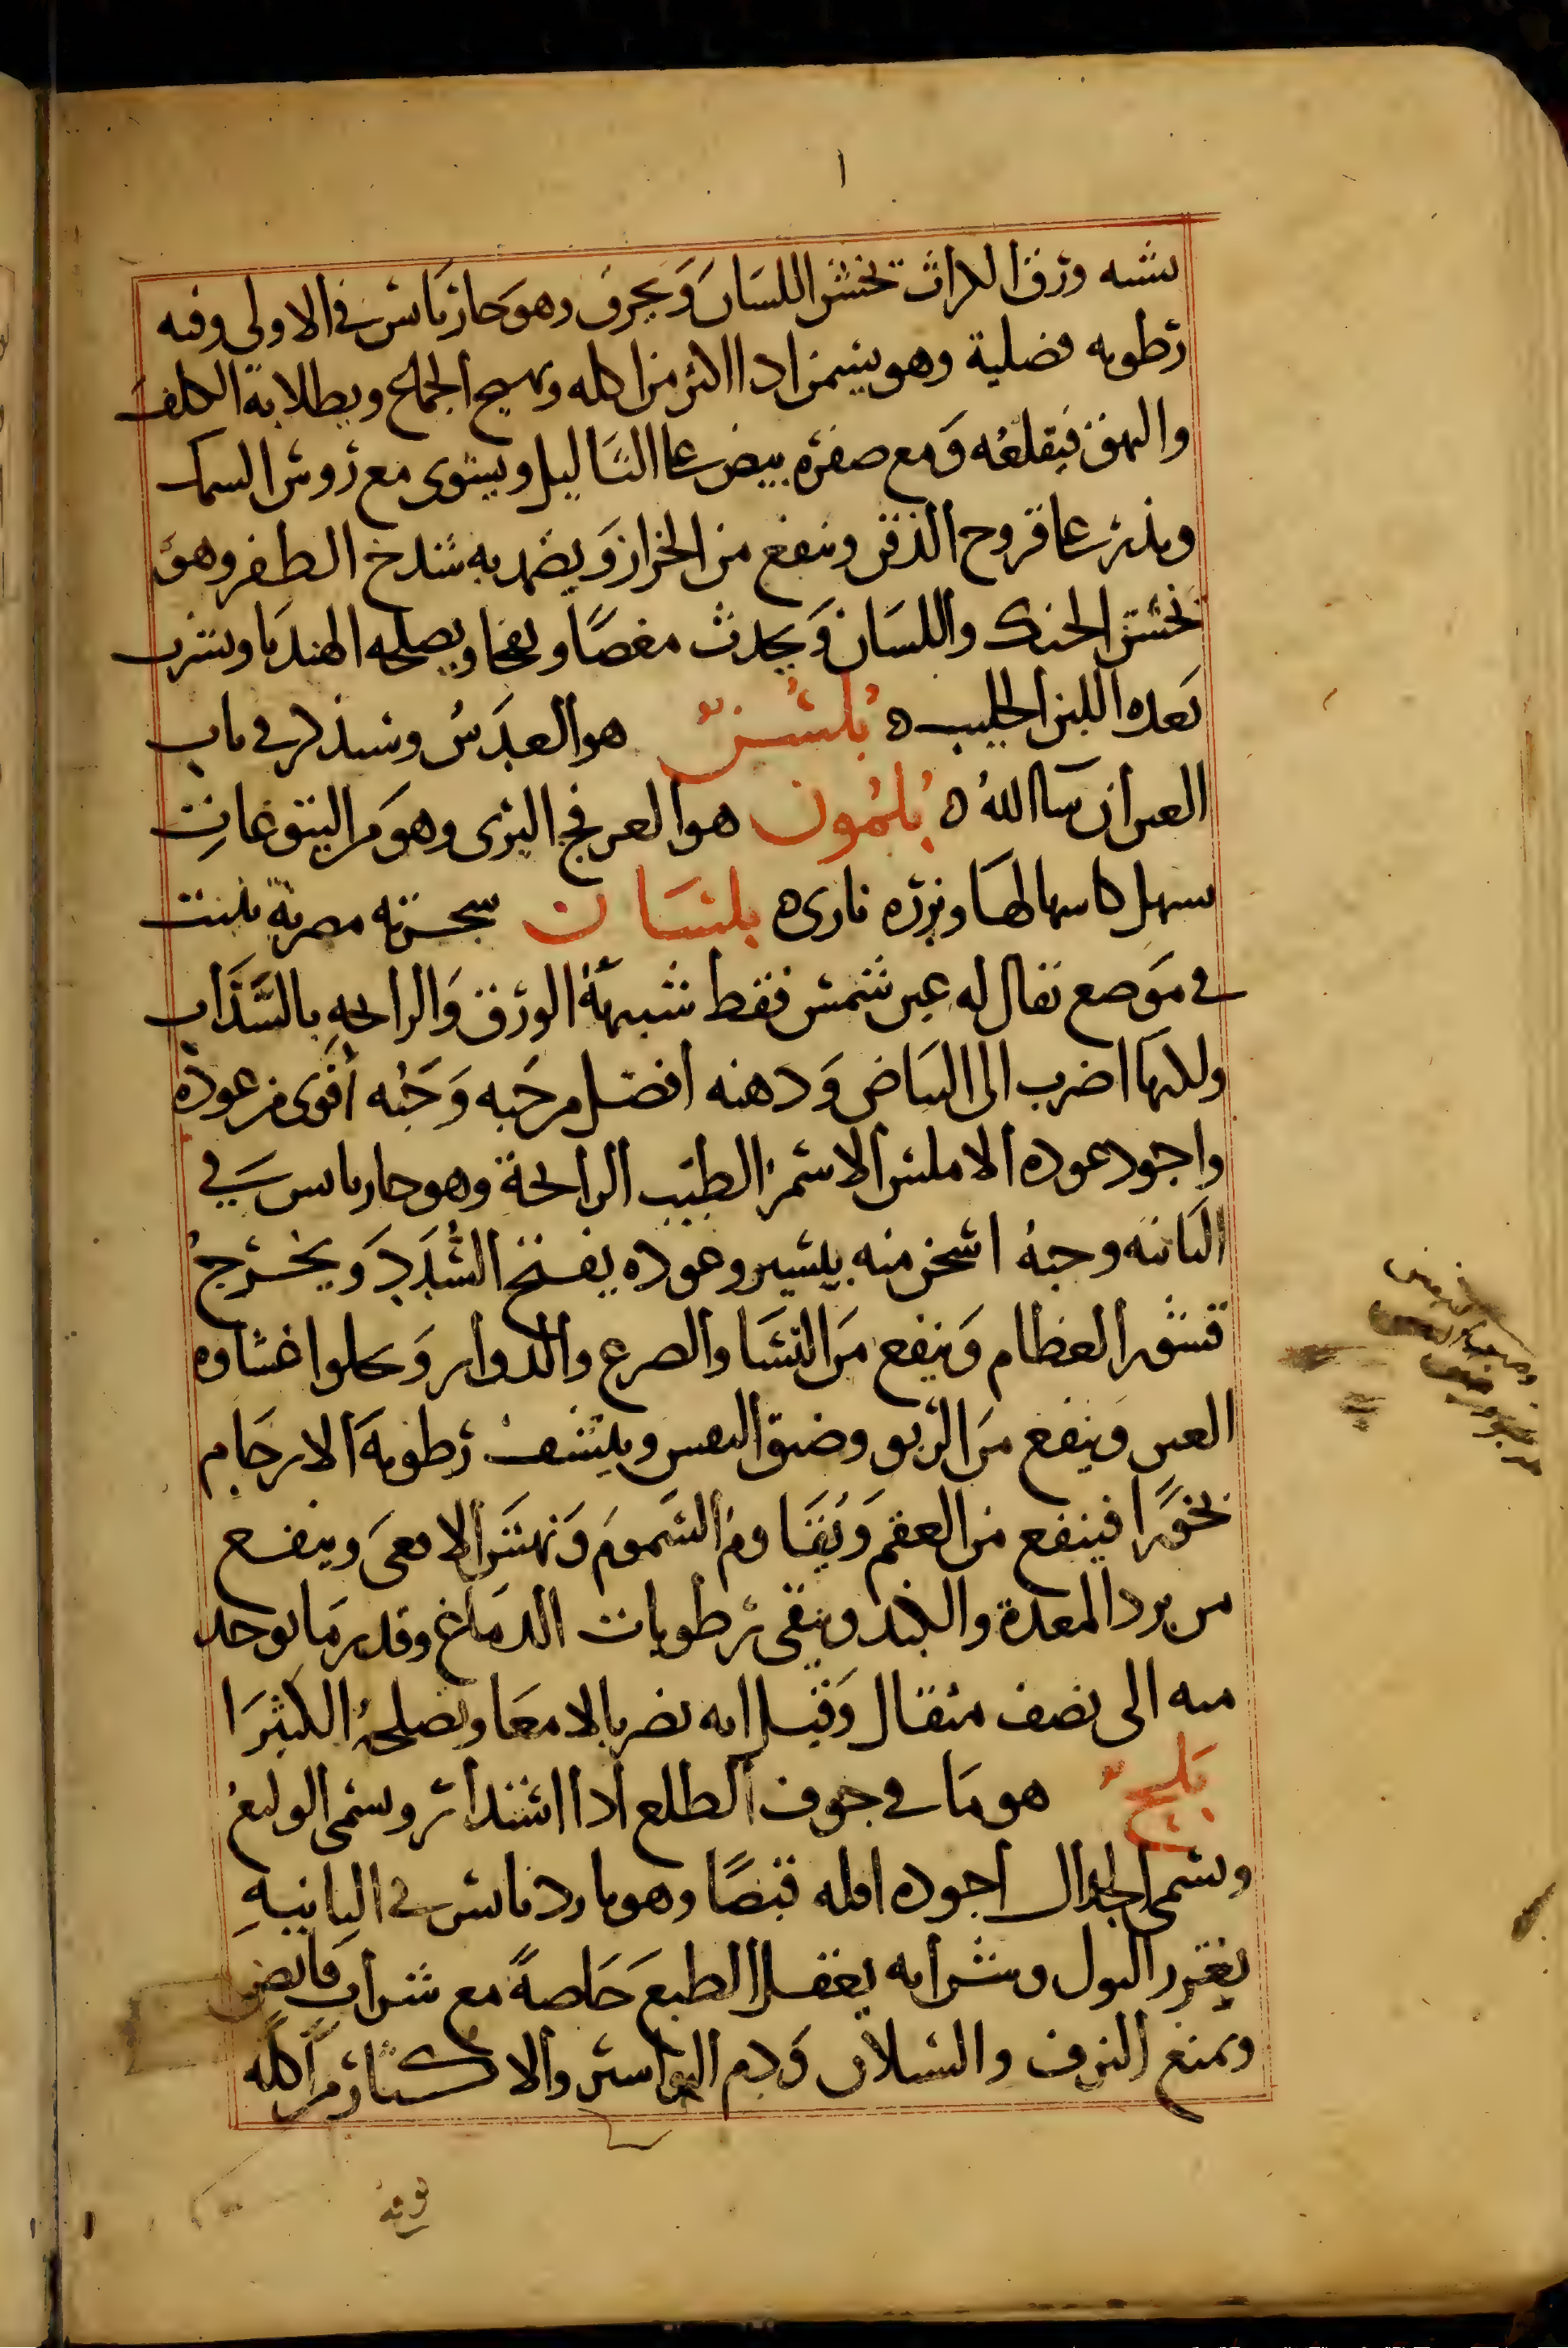 ١
يشبه ورق الكراث تخشن اللسان ويحرف وهو حار يابس في الاولى وفيه
رطوبه فضلية وهو يسمن اذا اكثر من اكله ويهيج الجماع ويطلا به الكلف
والبهق فيقلعه ومع صفرة بيض على الثاليل ويشوى مع روس السمك
ويذر على قروح الذقن وينفع من الحزاز ويضمد به شدخ الظفر وهو
يخشن الحنك واللسان ويحدث مغصًا ونفخا ويصلحه الهندبا ويشرب
بعده اللبن الحليب ه بُلْسُنٌ هو العدس وسنذكر في باب
العين ان شا اللهُ ه بُلْمُون هو العرفج البرى وهو من اليتوعات
يسهل كاسهالها وبزره نارى ه بلسان شجرته مصرية تنبت
في موضع يقال له عين شمس فقط شبيهة الورق والرايحه بالسذاب
ولكنها اضرب الى البياض ودهنه افضل من حبه وحبه أقوى من عوده
واجود عوده الاملس الاسمر الطيب الرايحة وهو حار يابس في
الثانيه وحبه اسخن منه بيسير وعوده يفتح السُّدد ويخرج
قشور العظام وينفع من النسا والصرع والدوار ويجلوا غشاوه
العين وينفع من الربو وضيق النفس وينشف رطوبة الارحام
بخورًا فينفع من العقم ويقاوم السموم ونهش الافعى وينفع
من برد المعدة والكبد وينقى رطوبات الدماغ وقدر ما يوخذ
منه الى نصف مثقال وقيل انه يضر بالامعا ويصلحه الكثيرا
بَلَحٌ هو ما في جوف الطلع اذا اشتد أثر ويسمى الوليع
ويسمى الجدال اجوده اقله قبضًا وهو بارد يابس في الثانية
يغزر البول وشرابه يعقل الطبع خاصةً مع شراب قابض
ويمنع النزف والسيلان ودم البواسير والاكثار من اكله